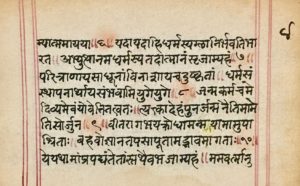 ४
म्यात्ममायया॥६॥यदायदाहिधर्मस्यग्लानिर्भवतिभा
रत॥ अभ्युत्थानमधर्मस्यतदात्मानंसृजाम्यहं॥७॥
परित्राणायसाधूनांविनाशायचदुष्कृतां॥ धर्मसं
स्थापनार्थायसंभवामियुगेयुगे॥८॥जन्मकर्मचमे
दिव्यमेवंयोवेत्तितत्वतः॥ त्यक्त्वादेहंपुनर्जन्मनैतिमामे
तिसोर्जुन॥९॥वीतरागभयक्रोधामन्मयामामुपा
श्रिताः॥ बहवोज्ञानतपसापूतामद्भावमागताः॥१०॥
येयथामांप्रपद्यंतेतांस्तथैवभजाम्यहं॥ ममवर्त्मानु